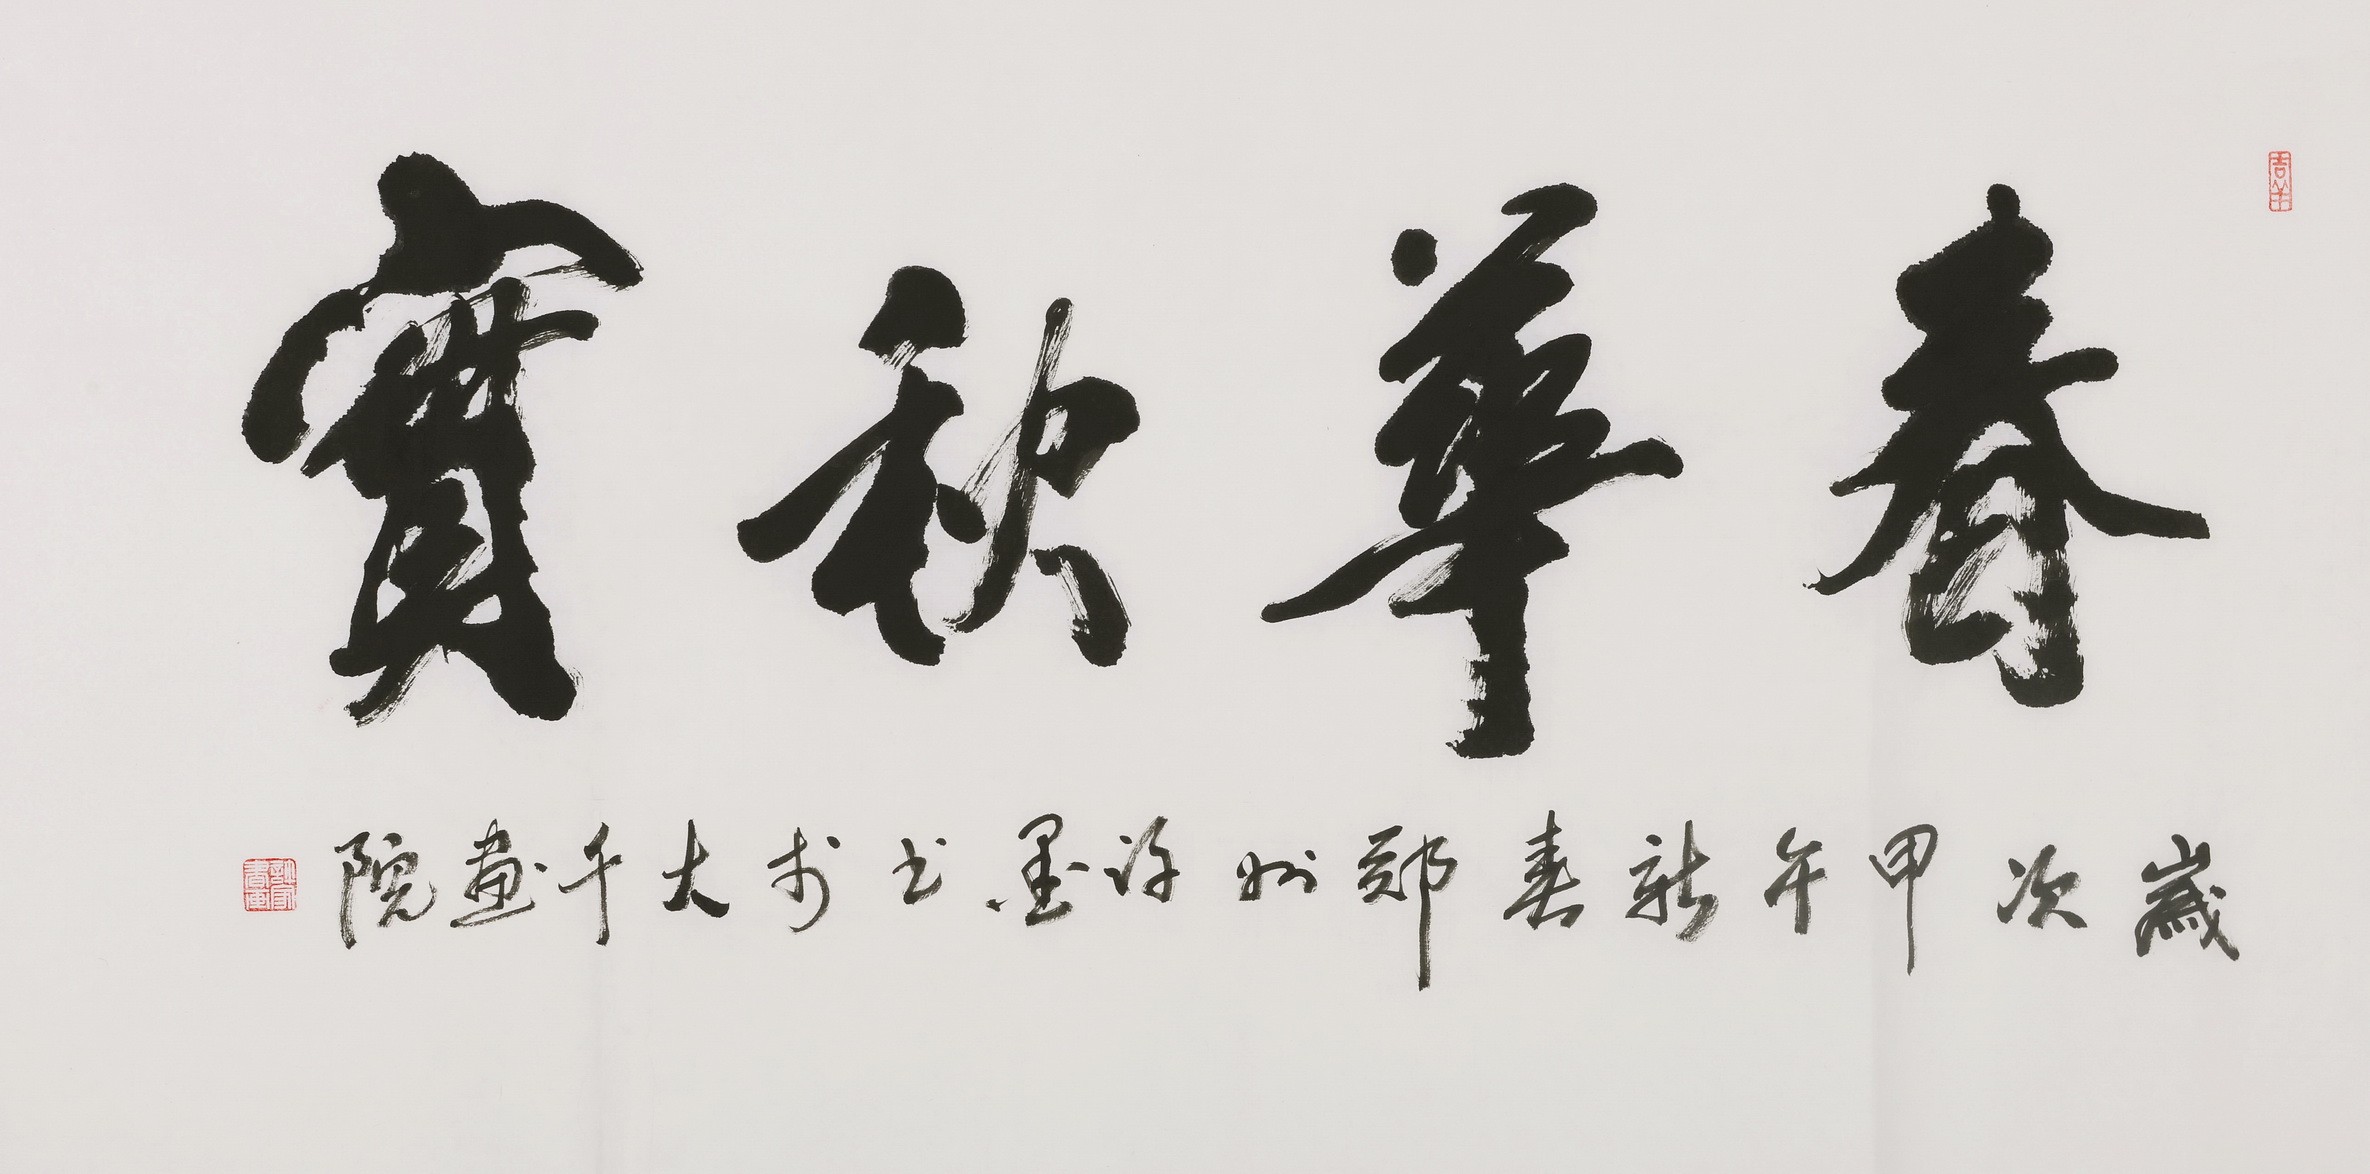 春華秋實
歲次甲午新春鄭州許墨書於大千画院